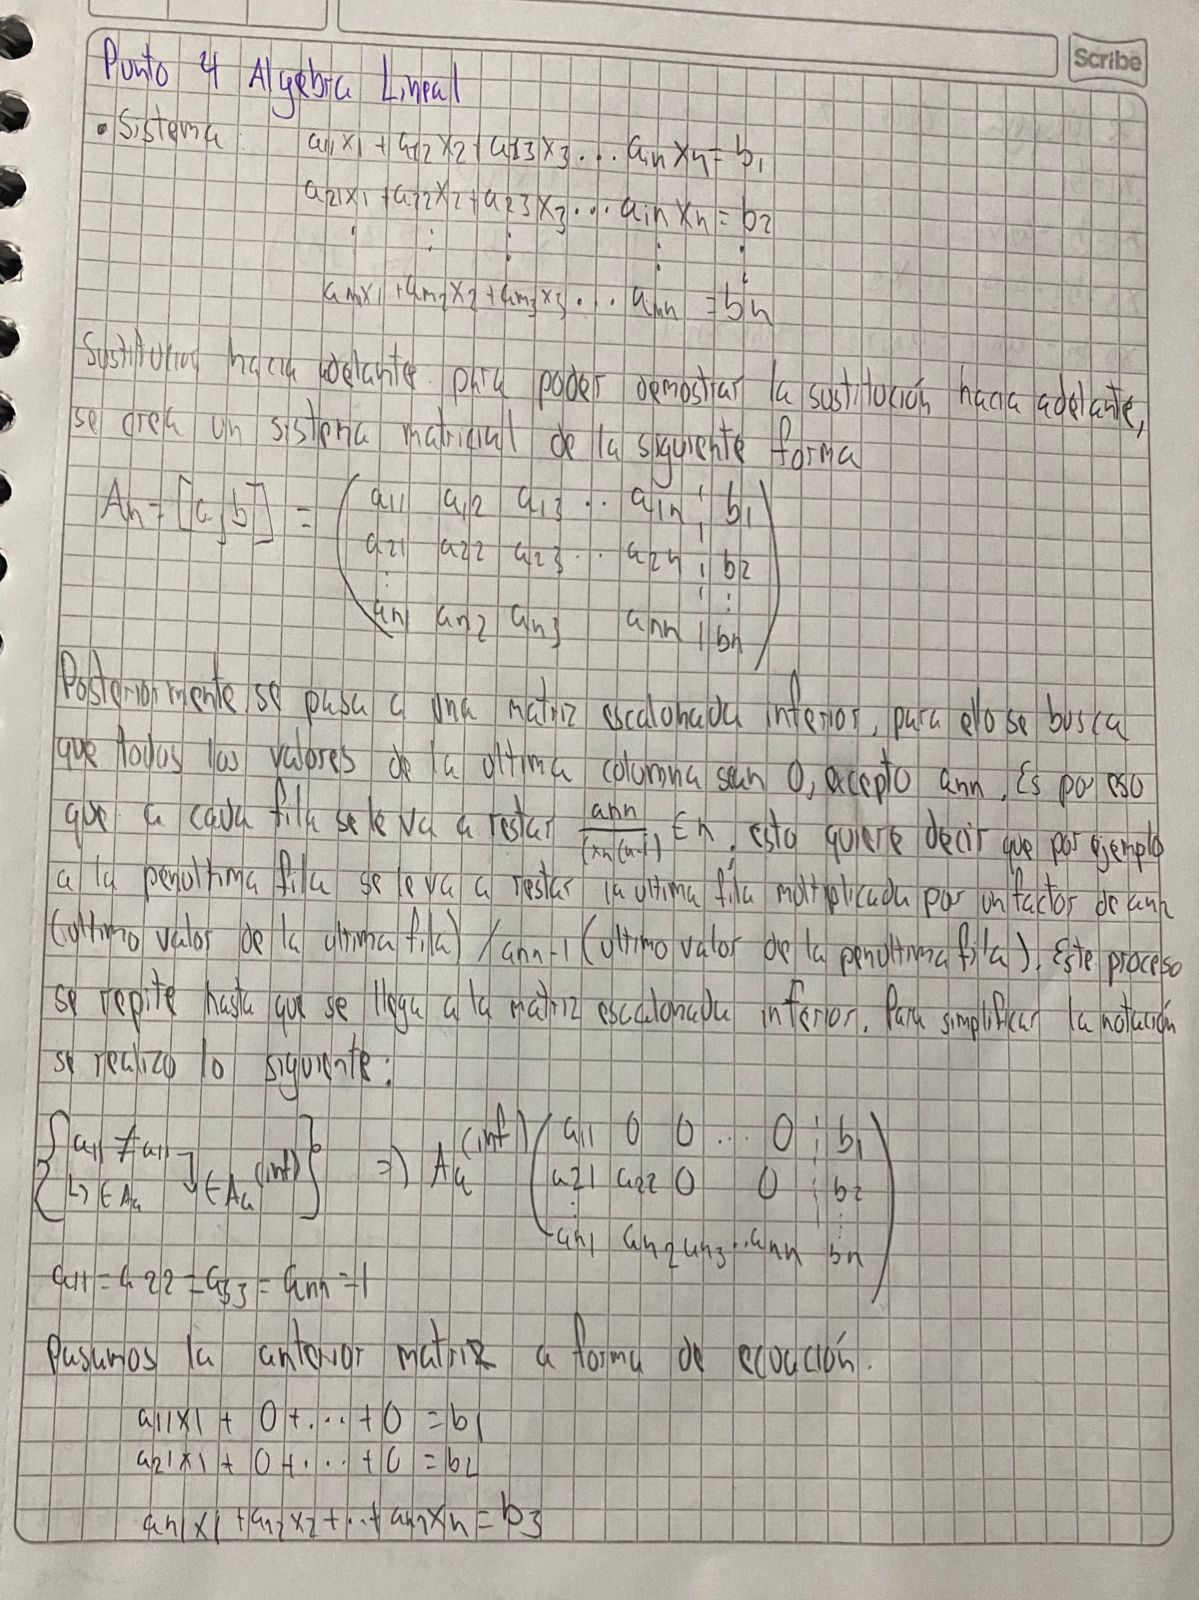 Scribe
Punto 4 Algebra Lineal
• Sistema a11x1 + a12x2 + a13x3 ... a1nxn = b1
a21x1 + a22x2 + a23x3 ... a1nxn = b2
: : : : :
am1x1 + am2x2 + am3x3 ... amn = bn
Sustitución hacia adelante. para poder demostrar la sustitución hacia adelante,
se crea un sistema matricial de la siguiente forma
An = [a,b] = ( a11 a12 a13 ... a1n ¦ b1
a21 a22 a23 ... a2n ¦ b2
: ¦ :
an1 an2 an3 ann ¦ bn )
Posteriormente se pasa a una matriz escalonada inferior, para ello se busca
que todos los valores de la ultima columna sean 0, excepto ann. Es por eso
que a cada fila se le va a restar ann/ En, esto quiere decir que por ejemplo
a la penultima fila se le va a restar la ultima fila multiplicada por un factor de ann
(ultimo valor de la ultima fila) / ann-1 (ultimo valor de la penultima fila). Este proceso
se repite hasta que se llega a la matriz escalonada inferior. Para simplificar la notación
se realizo lo siguiente:
{ a11 ≠ a11 ⇒ Aa (inf) ( a11 0 0 ... 0 ¦ b1
↳ ∈ Aa ↴ ∈ Aa (inf) } a21 a22 0 0 ¦ b2
: :
an1 an2 an3 .. ann bn )
a11 = a22 = a33 = ann = 1
Pasamos la anterior matriz a forma de ecuación.
a11x1 + 0 + ... + 0 = b1
a21x1 + 0 + ... + 0 = b2
an1x1 + an2x2 + ... + annxn = b3